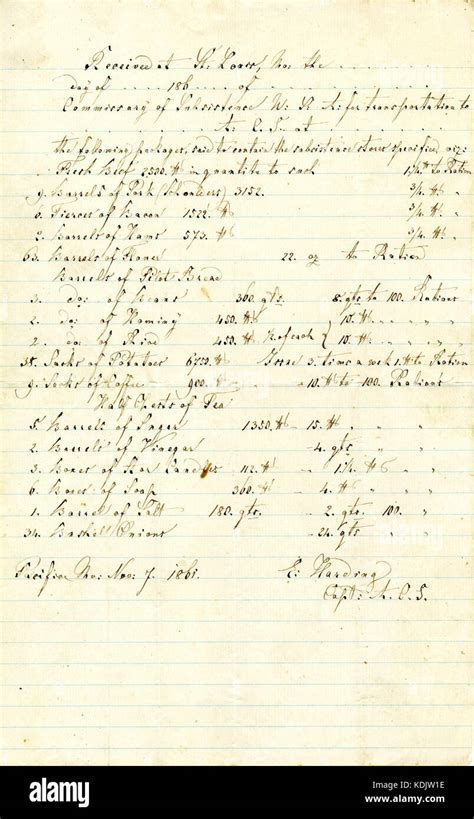 Received at St. Louis, Mo. the
day of 186 of
Commissary of Subsistence for transportation to
A. C. S. at
the following packages, said to contain the subsistence stores specified viz:
Fresh Beef 2500 ℔ in quantite to each 1¼ ℔ to Ration
9. Barrels of Pork 3152. ¾ ℔ "
6. Tierces of Bacon 1522 ℔ ¾ ℔ "
2. Barrels of Hams 573. ℔ ¾ ℔ "
63. Barrels of Flour 22. oz to Ration
Barrels of Pilot Bread
3. do: of Beans 360. qts. 8. qts to 100. Rations
2. do: of Hominy 450. ℔ 10. ℔ " "
2. do: of Rice 450. ℔ 10. ℔ " "
35. Sacks of Potatoes 6750 ℔ Issue 3. times a week 1. ℔ to Ration
9. Sacks of Coffee 900 ℔ 10. ℔ to 100. Rations
Half Chests of Tea
5. Barrels of Sugar 1350. ℔ 15. ℔ " "
2. Barrels of Vinegar 4. qts. " "
3. Boxes of Star Candles 112. ℔ 1¼ ℔ " "
6. Boxes of Soap 360. ℔ 4. ℔ " "
1. Barrel of Salt 180. qts. 2. qts. 100. "
34. Bushels Onions 24. qts " "
Pacific Mo: Nov: 7. 1861. E. Harding
Capt: A. C. S.
alamy
alamy
Image ID: KDJW1E
www.alamy.com